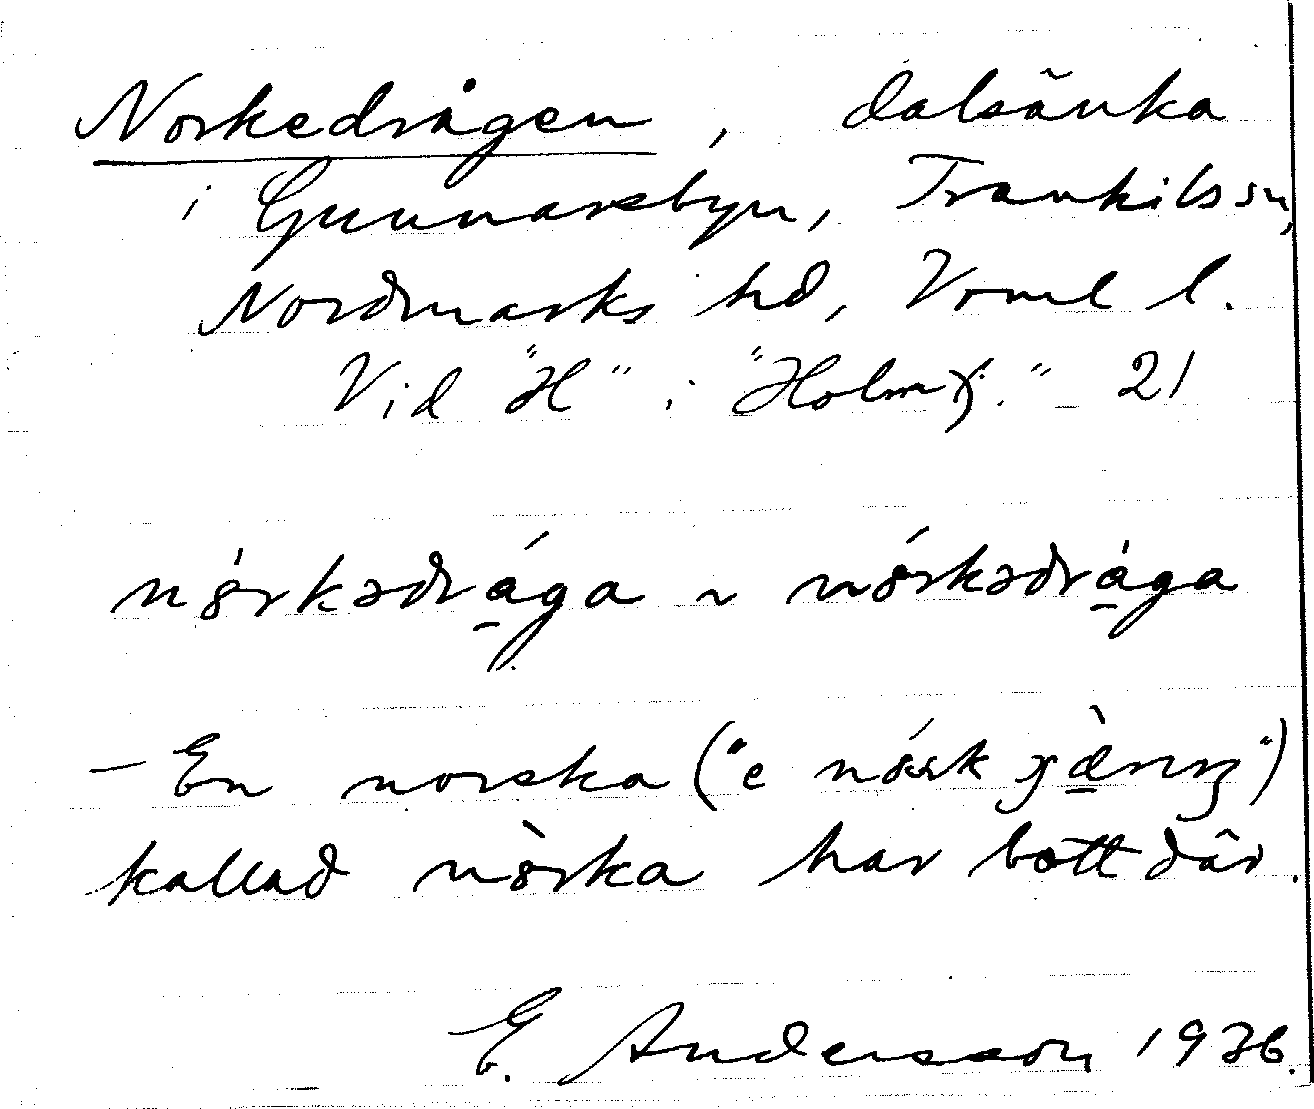 Norkedrågen, dalsänka
i Gunnarsbyn, Trankils sn,
Nordmarks hd, Vrml l.
Vid "H" i "Holmy." 21
nȣ́rkədrága ~ nȣ́rkədrága
- En norska ("e nȣ́rsk")
kallad nȣ̀rka har bott där.
E. Andersson 1936.